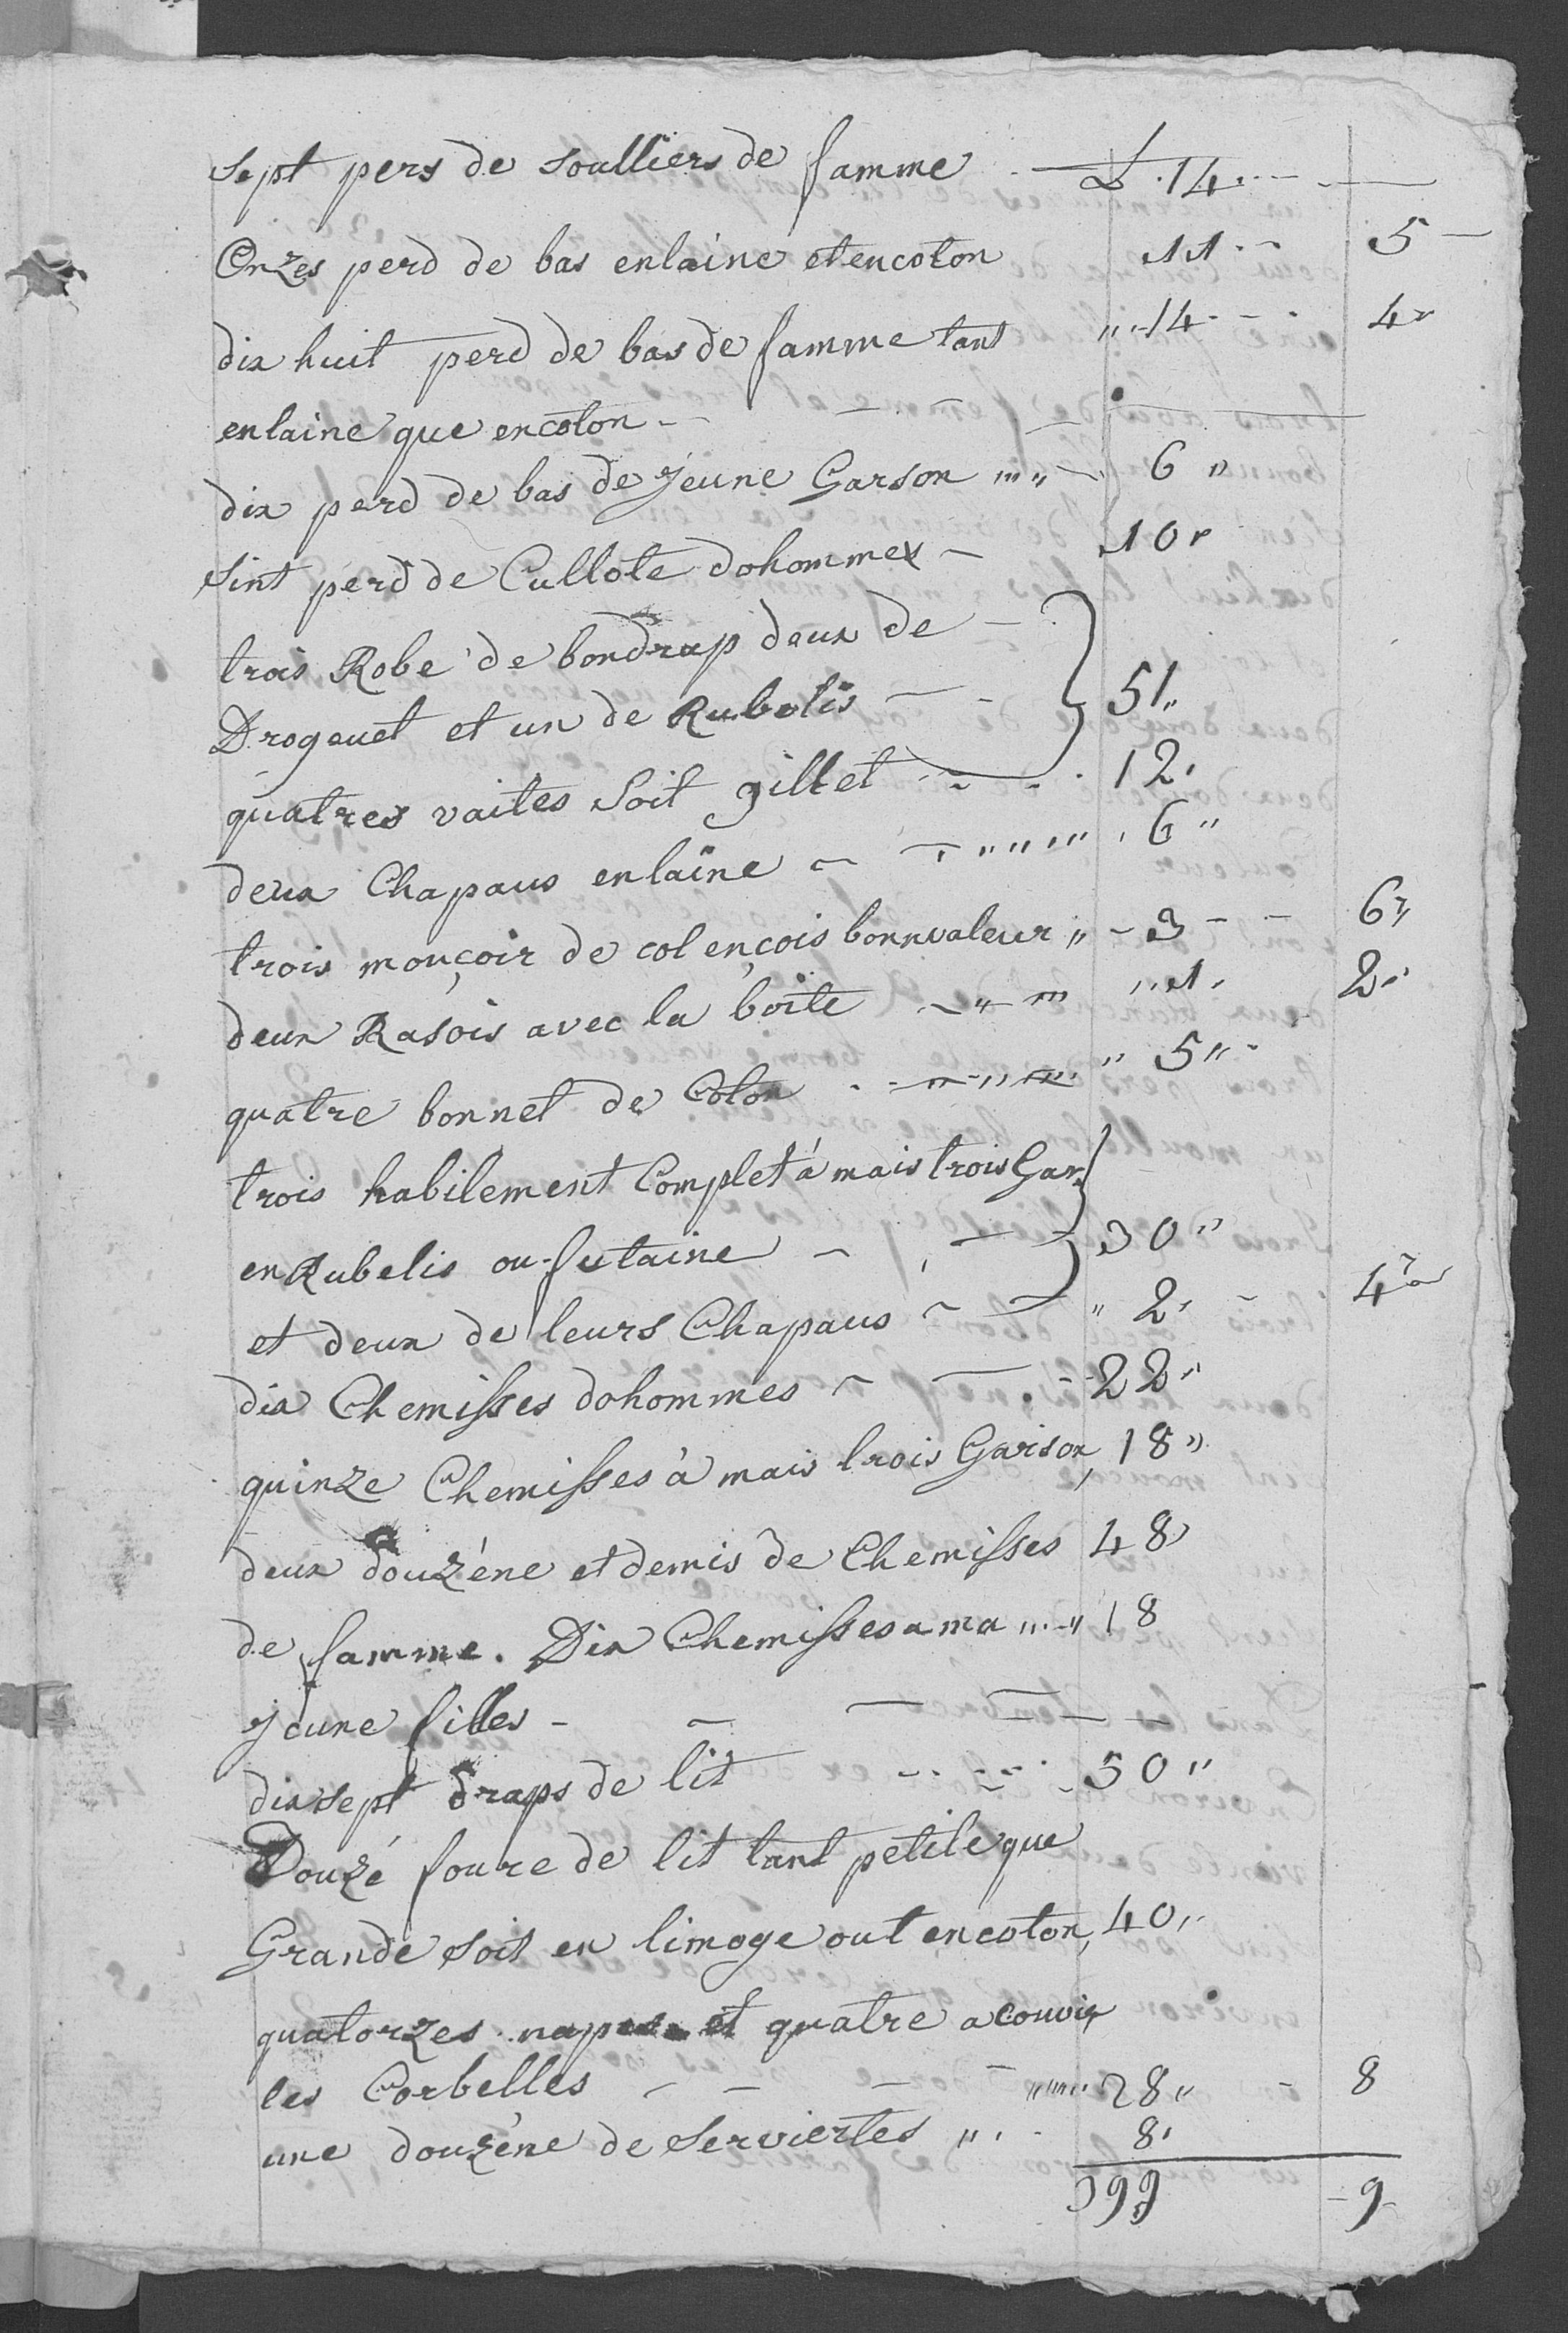 Sept pers de soulliers de famme L 14
Onzes perd de bas enlaine et encoton 11 5
dix huit perd de bas de famme tant 14 4
enlaine que encoton
dix perd de bas de jeune Garson 6
Sint perd de Cullote dohommes 10
trois Robe de bondrap deux de
Drogeuet et un de Rubelis 51
quatres vaites soit gillet 12
deux Chapaus enlaine 6
trois mouçoir de col ençois bonnvaleur 3 6
deux Rasois avec la boite 1 2
quatre bonnet de Coton 5
trois habilement Complet à mais trois Gar.
en Rubelis ou futaine 30
et deux de leurs Chapaus 2 4
dix Chemisses dohommes 22
quinze Chemisses à mais trois Garison 18
deux douzéne et demis de Chemisses 48
de famme. Dix Chemisses a ma 18
jeune filles
dix sept draps de lit 50
Douzé foure de lit tant petite que
Grande soit en limoge out encoton 40
quatorzes et quatre a couvir
les Corbelles 28 8
une douzéne de Serviertes 8
399 9